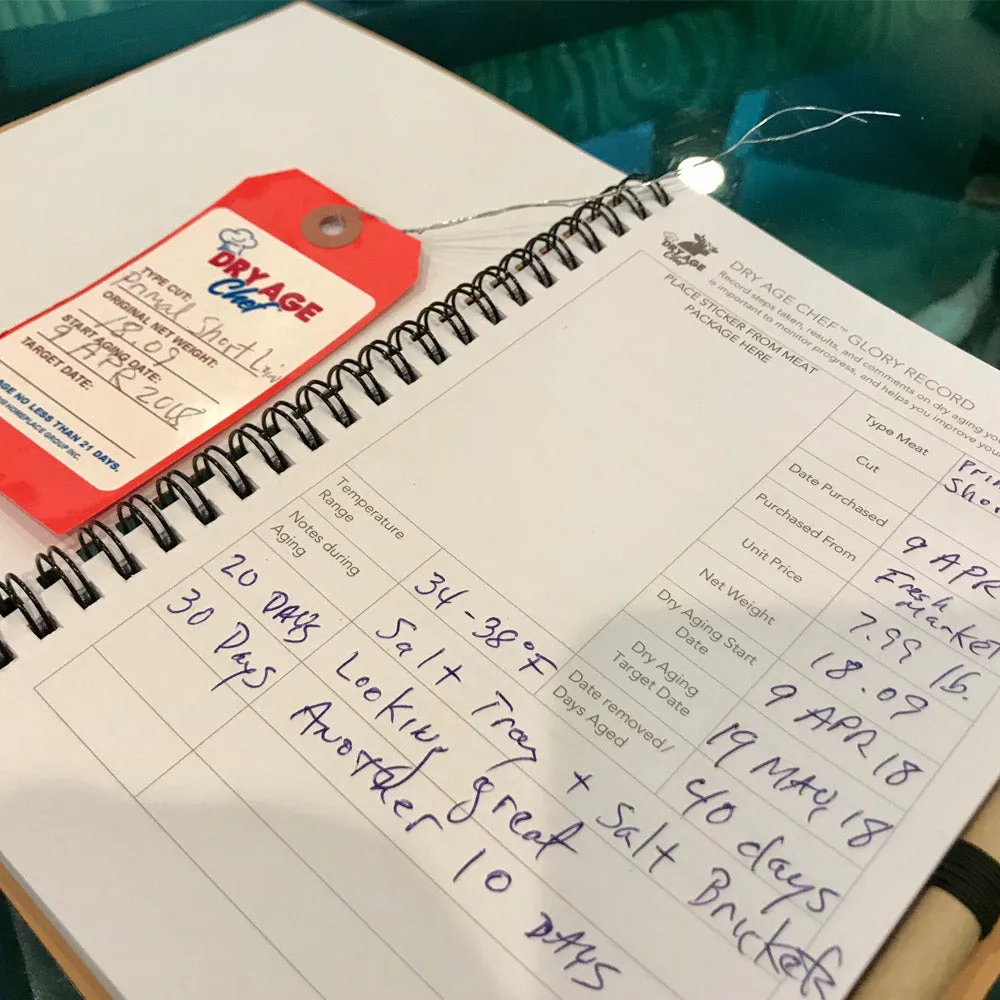 DRY AGE
Chef
TYPE CUT:
Primal Short Loin
ORIGINAL NET WEIGHT:
18.09
START AGING DATE:
9 APR 2018
TARGET DATE:
AGE NO LESS THAN 21 DAYS.
HOMEPLACE GROUP INC.
DRY AGE
Chef
DRY AGE CHEF™ GLORY RECORD
Record steps taken, results, and comments on dry aging
is important to monitor progress, and helps you improve your
PLACE STICKER FROM MEAT
PACKAGE HERE
Type Meat
Cut
Sho
Date Purchased
9 APR
Purchased From
Fresh
Market
Unit Price
7.99 lb.
Net Weight
18.09
Dry Aging Start
Date
9 APR 18
Dry Aging
Target Date
19 MAY 18
Date removed/
Days Aged
40 days
Temperature
Range
34-38°F
Notes during
Aging
Salt Tray + Salt Brickets
20 DAYS Looking great
30 Days Another 10 DAYS